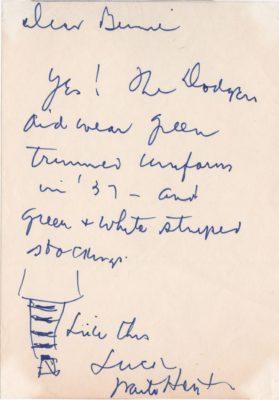 Dear Bennie
Yes! The Dodgers
did wear green
trimmed uniforms
in '37 - and
green + white striped
stockings.
Like this
Waite Hoyt